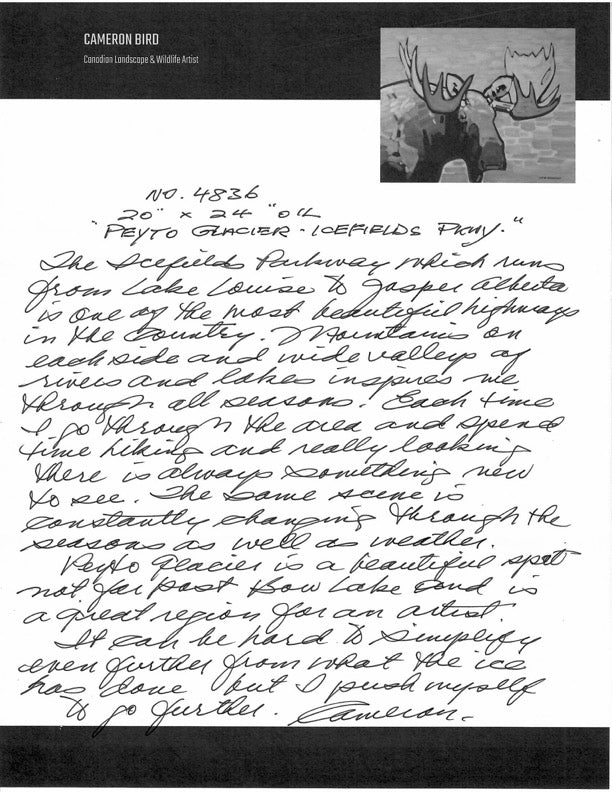 CAMERON BIRD
Canadian Landscape & Wildlife Artist
NO. 4836
20" x 24" OIL
"PEYTO GLACIER - ICEFIELDS PKWY."
The Icefields Parkway which runs
from Lake Louise to Jasper Alberta
is one of the most beautiful highways
in the country. Mountains on
each side and wide valleys of
rivers and lakes inspires me
through all seasons. Each time
I go through the area and spend
time hiking and really looking
there is always something new
to see. The same scene is
constantly changing through the
seasons as well as weather.
Peyto Glacier is a beautiful spot
not far past Bow Lake and is
a great region for an artist.
It can be hard to simplify
even further from what the ice
has done but I push myself
to go further. Cameron.